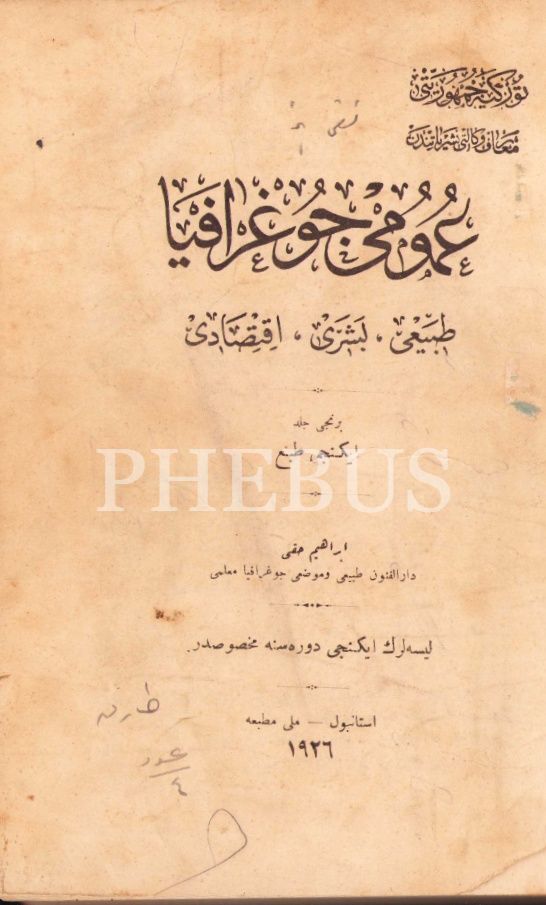 توركيه جمهوريتى
معارف وكالتى نشرياتندن
عُمُومى جُوغرافيا
طبيعى ، بشرى ، اقتصادى
برنجى جلد
ايكنجى طبع
PHEBUS
ابراهيم حقى
دارالفنون طبيعى وموضعى جوغرافيا معلمى
ليسه‌لرك ايكنجى دوره‌سنه مخصوصدر.
استانبول — ملى مطبعه
١٩٢٦
٤